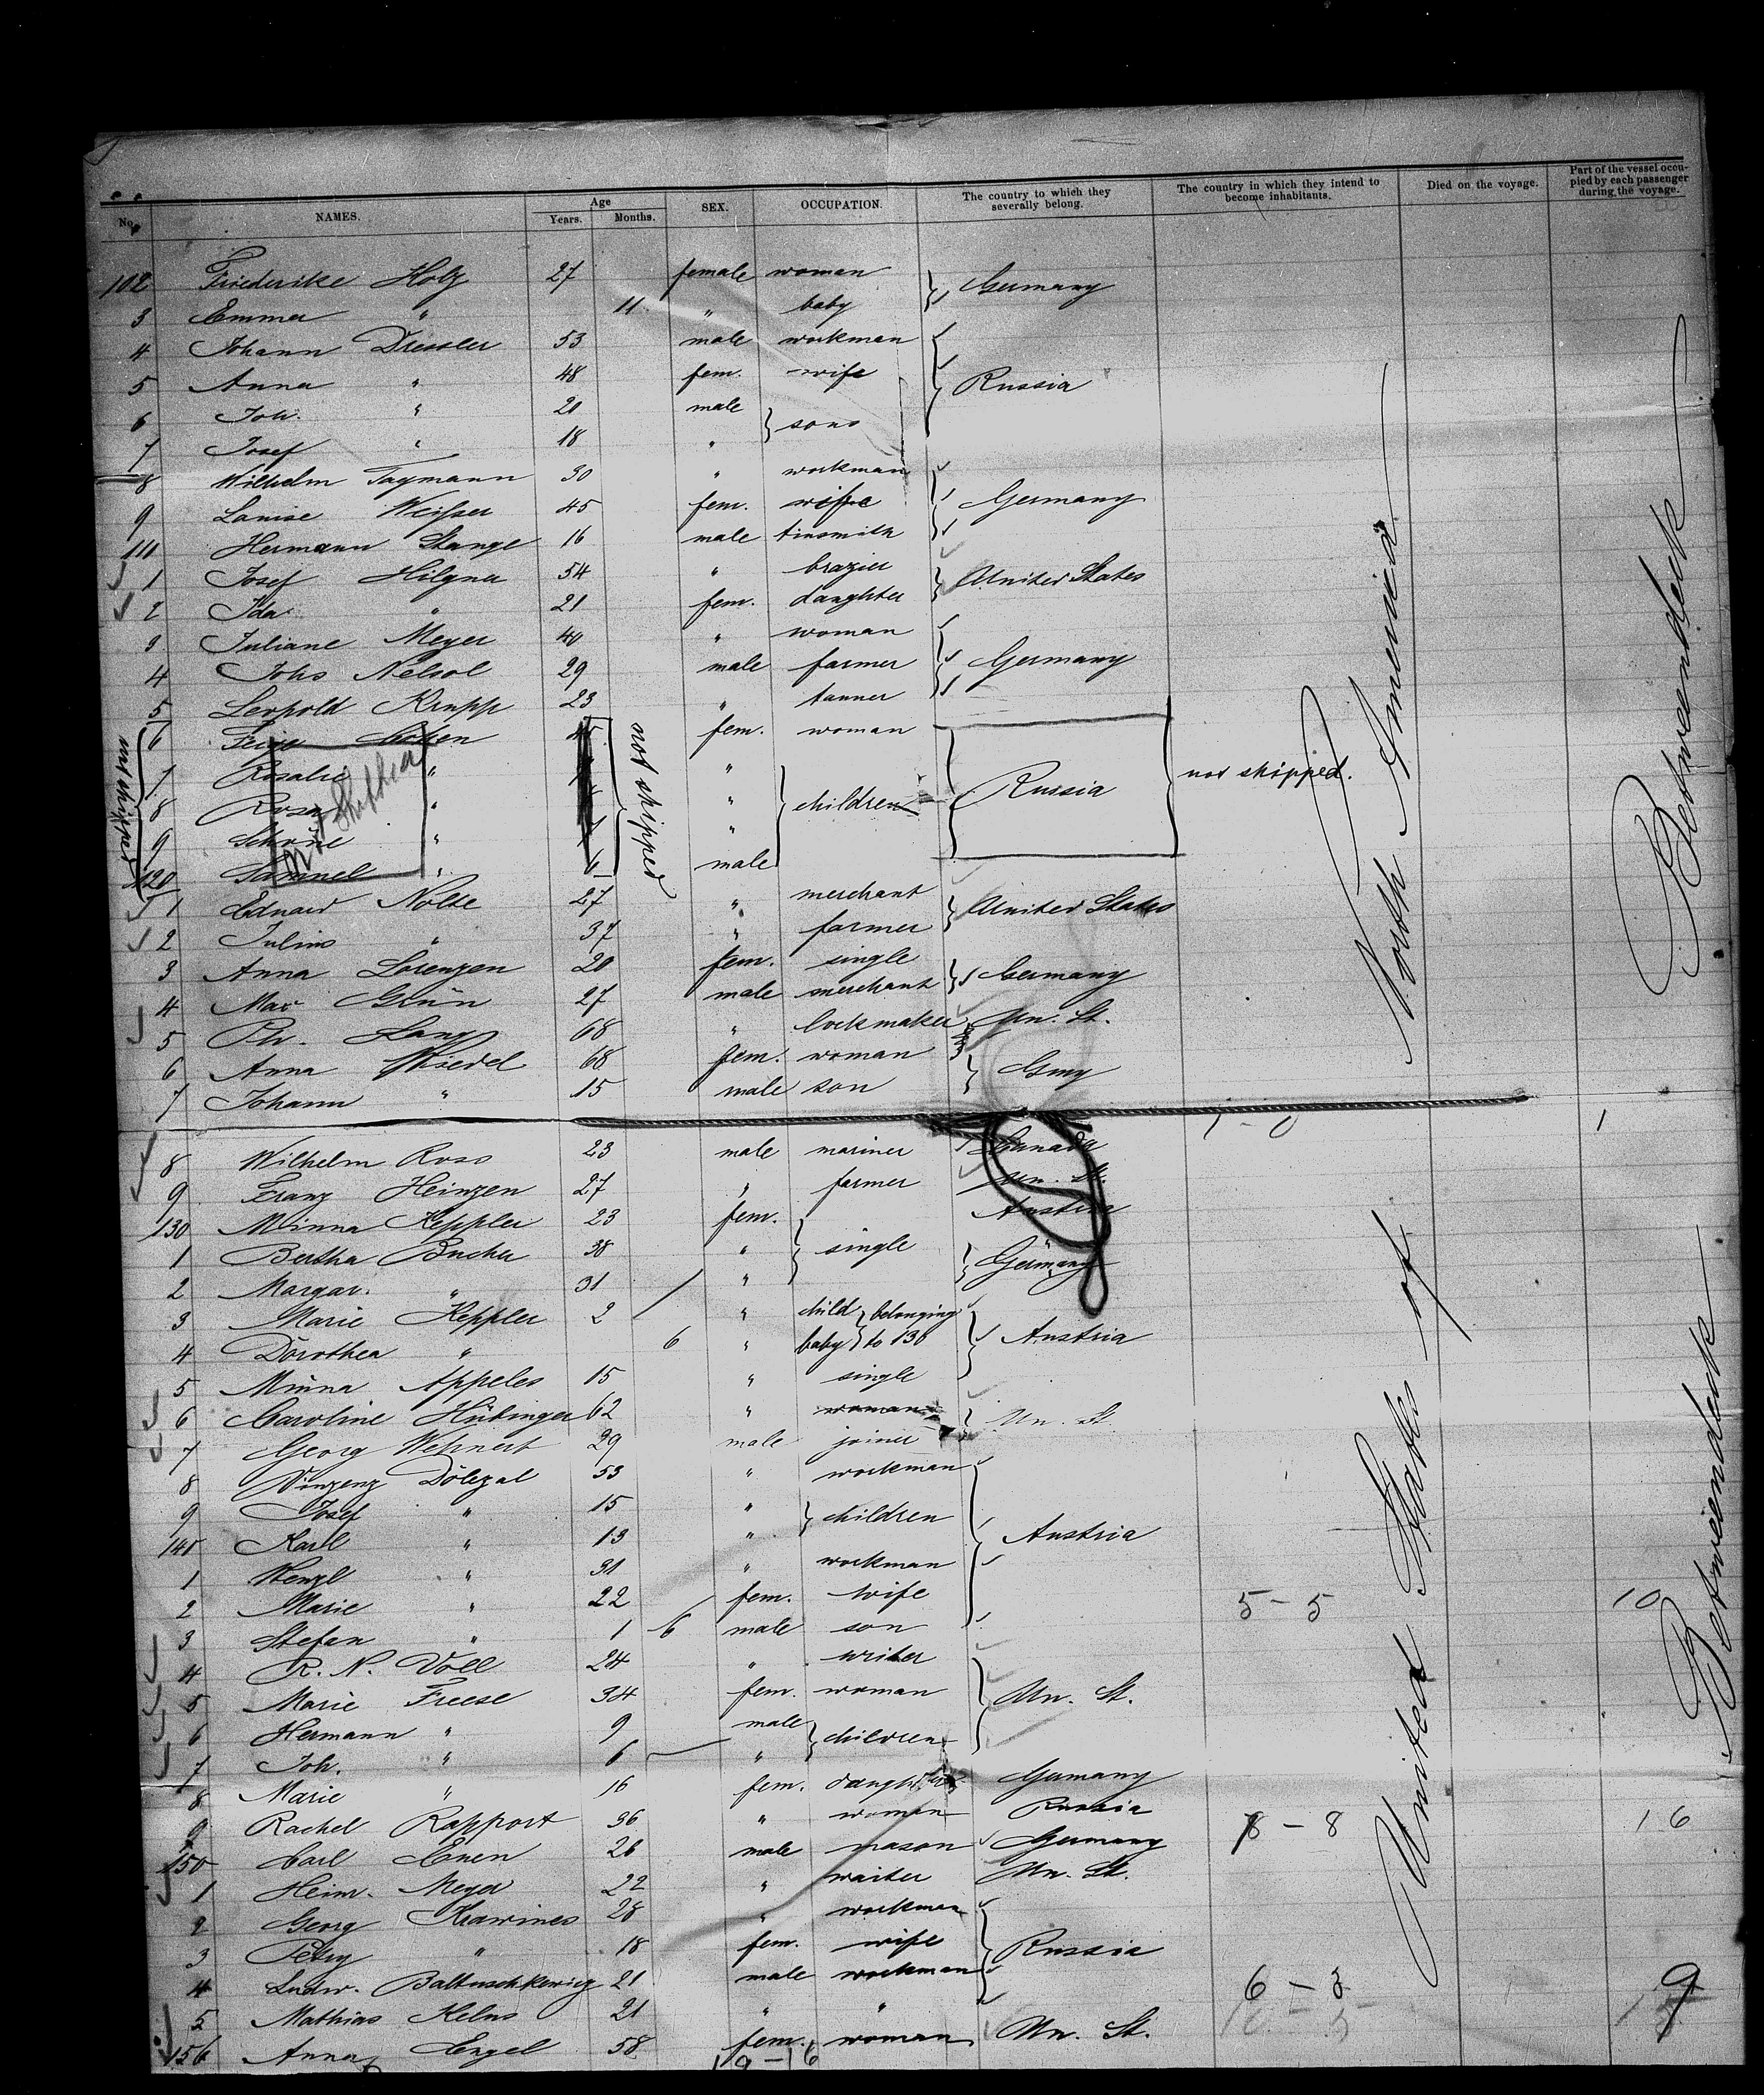 No. NAMES. Age Years. Months. SEX. OCCUPATION. The country to which they severally belong. The country in which they intend to become inhabitants. Died on the voyage. Part of the vessel occupied by each passenger during the voyage.
102 Friederike Holz 27 female woman Germany
3 Emma " 11 " baby
4 Johann Dressler 53 male workman
5 Anna " 48 fem. wife Russia
6 Joh. " 20 male sons
7 Josef " 18 "
8 Wilhelm Tagmann 30 " workman
9 Louise Weisser 45 fem. wife Germany
110 Hermann Stange 16 male tinsmith
1 Josef Hilgner 54 " brazier United States
2 Ida " 21 fem. daughter
3 Juliane Meyer 40 " woman
4 Johs Nelsol 29 male farmer Germany
5 Leopold Krupp 23 " tanner
6 Feige Cohen fem. woman
7 Rosalie " " not shipped
8 Rosa " " children Russia not shipped.
9 Schöne " "
120 Samuel " 6 male
not shipped
not shipped
1 Eduard Nolte 27 " merchant United States
2 Julius " 37 " farmer
3 Anna Lorenzen 20 fem. single Germany
4 Max Grün 27 male merchant
5 Ph. Lang 68 " lockmaker Un. St.
6 Anna 68 fem. woman Gmy
7 Johann " 15 male son
1 - 0 1
8 Wilhelm Ross 23 male mariner Canada
9 Franz Heinzen 27 " farmer Un. St.
130 Minna Keppler 23 fem. single Austria
1 Bertha Bucher 38 " Germany
2 Margar. " 31 "
3 Marie Keppler 2 " child belonging
4 Dorothea " 6 " baby to 130 Austria
5 Minna Appeles 15 " single
6 Caroline Hübinger 62 " woman Un. St.
7 Georg Wehnert 29 male joiner
8 Vinzenz Dolezal 53 " workman
9 Josef " 15 " children
140 Karl " 13 " Austria
1 Wenzl " 31 " workman
2 Marie " 22 fem. wife 5 - 5 10
3 Stefan " 1 6 male son
4 R. N. Voll 24 " writer
5 Marie Freese 34 fem. woman Un. St.
6 Hermann " 9 male children
7 Joh. " 6 "
8 Marie " 16 fem. daughter Germany
9 Rachel Rapport 36 " woman Russia 8 - 8 16
150 Carl Enen 26 male mason Germany
1 Heinr. Meyer 22 " waiter Un. St.
2 Georg Krawines 28 " workman
3 Petry " 18 fem. wife Russia
4 Ludw. Baltuschkewicz 21 male workman 6 - 3 9
5 Mathias Kelns 21 " "
156 Anna Engel 58 fem. woman Un. St.
19 - 16
United States of North America
Betweendeck
Betweendeck